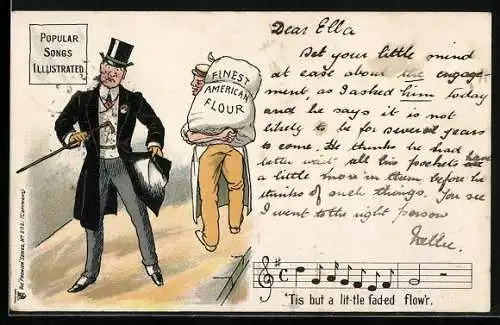 POPULAR
SONGS
ILLUSTRATED.
FINEST
AMERICAN
FLOUR
Dear Ella
Set your little mind
at ease about the engage-
ment, as I asked him today
and he says it is not
likely to be for several years
to come. He thinks he had
better wait till his pockets have
a little more in them before he
thinks of such things. You see
I went to the right person
Nellie.
'Tis but a lit-tle fad-ed flow'r.